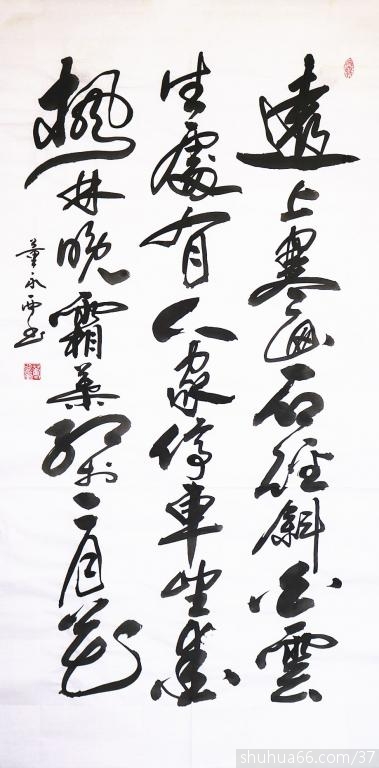 遠上寒山石徑斜白雲
生處有人家停車坐愛
楓林晚霜葉紅於二月花
董永书
shuhua66.com/37